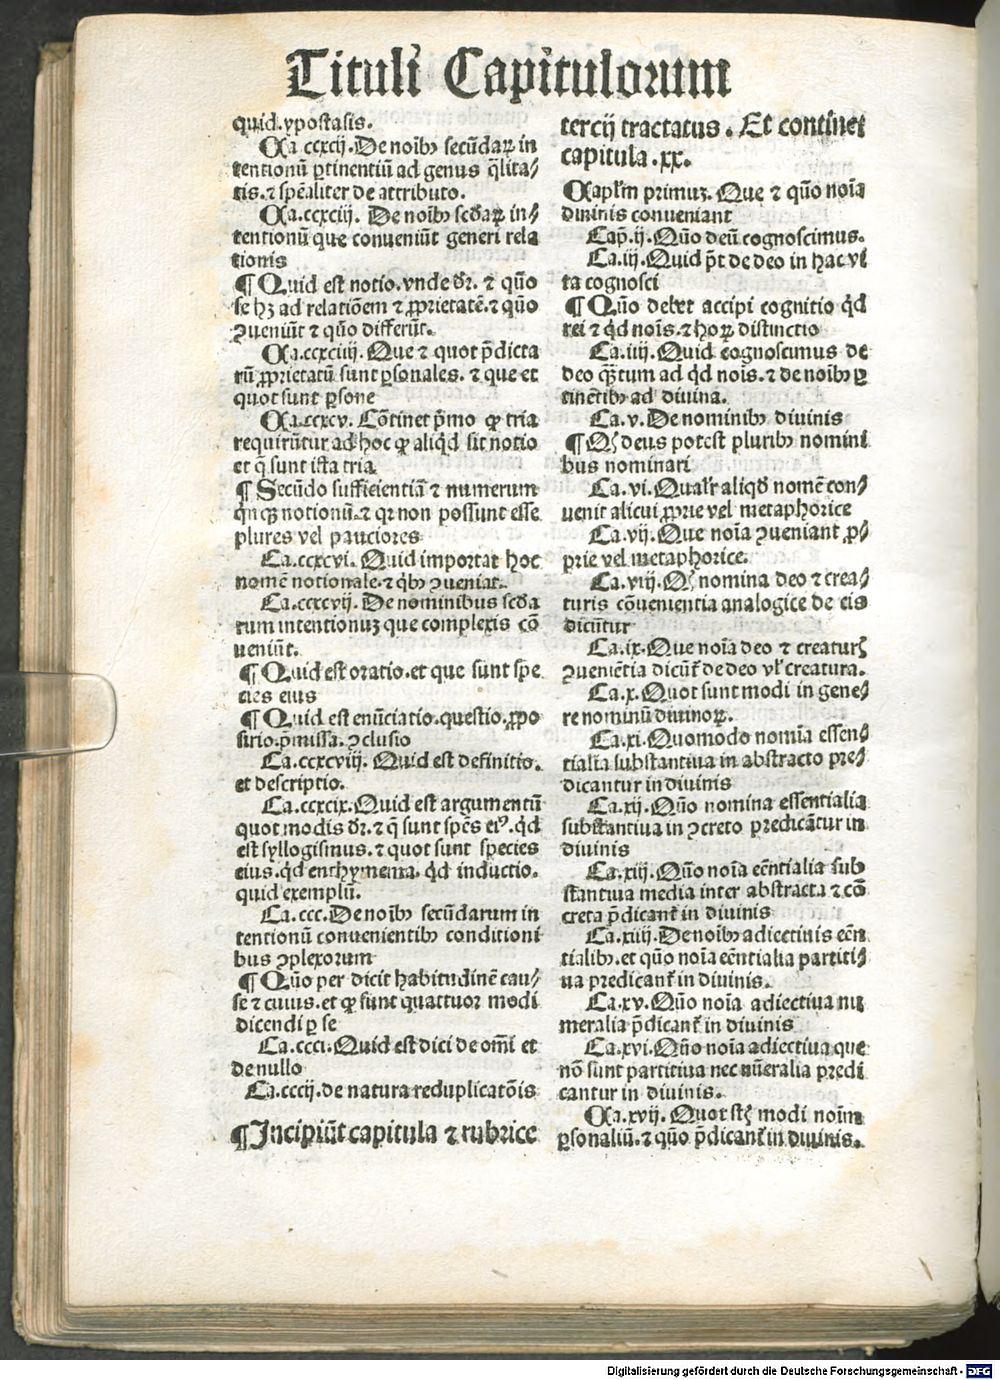 Tituli Capitulorum
quid.ypostasis.
Ca ccxcij.De noıbꝫ secūdaꝝ in
tentionū ꝑtinentiū ad genus q̄lita⸗
tis.⁊ spēaliter de attributo.
Ca.ccxciij. De noıbꝫ scd̄aꝝ in⸗
tentionū que conueniūt generi rela
tionis
¶ Quid est notio.vnde dr̄. ⁊ quō
se hꝫ ad relatiōem ⁊ ꝓprietatē.⁊ quō
ꝯueniūt ⁊ quō differūt.
Ca.ccxciiij. Que ⁊ quot p̄dicta
rū ꝓprietatū sunt ꝑsonales. ⁊ que et
quot sunt ꝑsone
Ca.ccxcv. Cōtinet p̄mo ꝙ tria
requirūtur ad hoc ꝙ aliqd̄ sit notio
et q̄ sunt ista tria
¶ Secūdo sufficientiā ⁊ numerum
qn̄qꝫ notionū.⁊ qr non possunt esse
plures vel pauciores
Ca.ccxcvi. Quid importat hoc
nomē notionale.⁊ qͥbꝫ ꝯueniat.
Ca.ccxcvij. De nominibus scd̄a
rum intentionuꝫ que complexis cō
ueniūt.
¶ Quid est oratio.et que sunt spe
cies eius
¶ Quid est enūciatio.questio.ꝓpo
sitio.p̄missa.ꝯclusio
Ca.ccxcviij. Quid est definitio.
et descriptio.
Ca.ccxcix.Quid est argumentū
quot modis dr̄.⁊ q̄ sunt spēs eiꝰ.qd̄
est syllogismus.⁊ quot sunt species
eius.qd̄ enthymema. qd̄ inductio.
quid exemplū.
Ca.ccc.De noıbꝫ secūdarum in
tentionū conuenientibꝫ conditioni
bus ꝯplexorum
¶ Quō per dicit habitudinē cau⸗
se ⁊ cuius.et ꝙ sunt quattuor modi
dicendi ꝑ se
Ca.ccci.Quid est dici de om̄i et
de nullo
Ca.cccij.de natura reduplicatōis
¶Incipiūt capitula ⁊ rubrice
tercij tractatus . Et continet
capitula .xx.
Capl̄m primuꝫ. Que ⁊ quō noīa
diuinis conueniant
Cap̄.ij.Quō deū cognoscimus.
Ca.iij.Quid pōt de deo in hac vi
ta cognosci
¶ Quō debet accipi cognitio qd̄
rei ⁊ qd̄ noīs.⁊ hoꝝ distinctio
Ca.iiij.Quid cognoscimus de
deo qꝫtum ad qd̄ nois.⁊ de noībꝫ ꝑ
tinētibꝫ ad diuina.
Ca.v.De nominibꝫ diuinis
¶ Qꝙ deus potest pluribꝫ nomini
bus nominari
Ca.vi.Qualr̄ aliqd̄ nomē con⸗
uenit alicui ꝓprie vel metaphorice
Ca.vij.Que noīa ꝯueniant ꝓ⸗
prie vel metaphorice.
Ca.viij.Qꝙ nomina deo ⁊ crea⸗
turis cōuenientia analogice de eis
dicūtur
Ca.ix.Que noīa deo ⁊ creaturꝭ
ꝯueniētia dicūt̄ de deo vl̓ creatura.
Ca.x.Quot sunt modi in gene⸗
re nominū diuinoꝝ.
Ca.xi.Quomodo nomīa essen⸗
tialia substantiua in abstracto pre⸗
dicantur in diuinis
Ca.xij.Quō nomina essentialia
substantiua in ꝯcreto predicātur in
diuinis
Ca.xiij.Quō noīa eēntialia sub
stantiua media inter abstracta ⁊ cō
creta p̄dicant̄ in diuinis
Ca.xiiij.De noībꝫ adiectiuis eēn
tialibꝫ.et quō noīa eēntialia partiti⸗
ua predicant̄ in diuinis.
Ca.xv.Quō noīa adiectiua nu
meralia p̄dicant̄ in diuinis
Ca.xvi.Quō noīa adiectiua que
nō sunt partitiua nec nūeralia predi
cantur in diuinis.
Ca.xvij. Quot stꝭ modi noīm
ꝑsonaliū.⁊ quō p̄dicant̄ in diuinis.
Digitalisierung gefördert durch die Deutsche Forschungsgemeinschaft - DFG